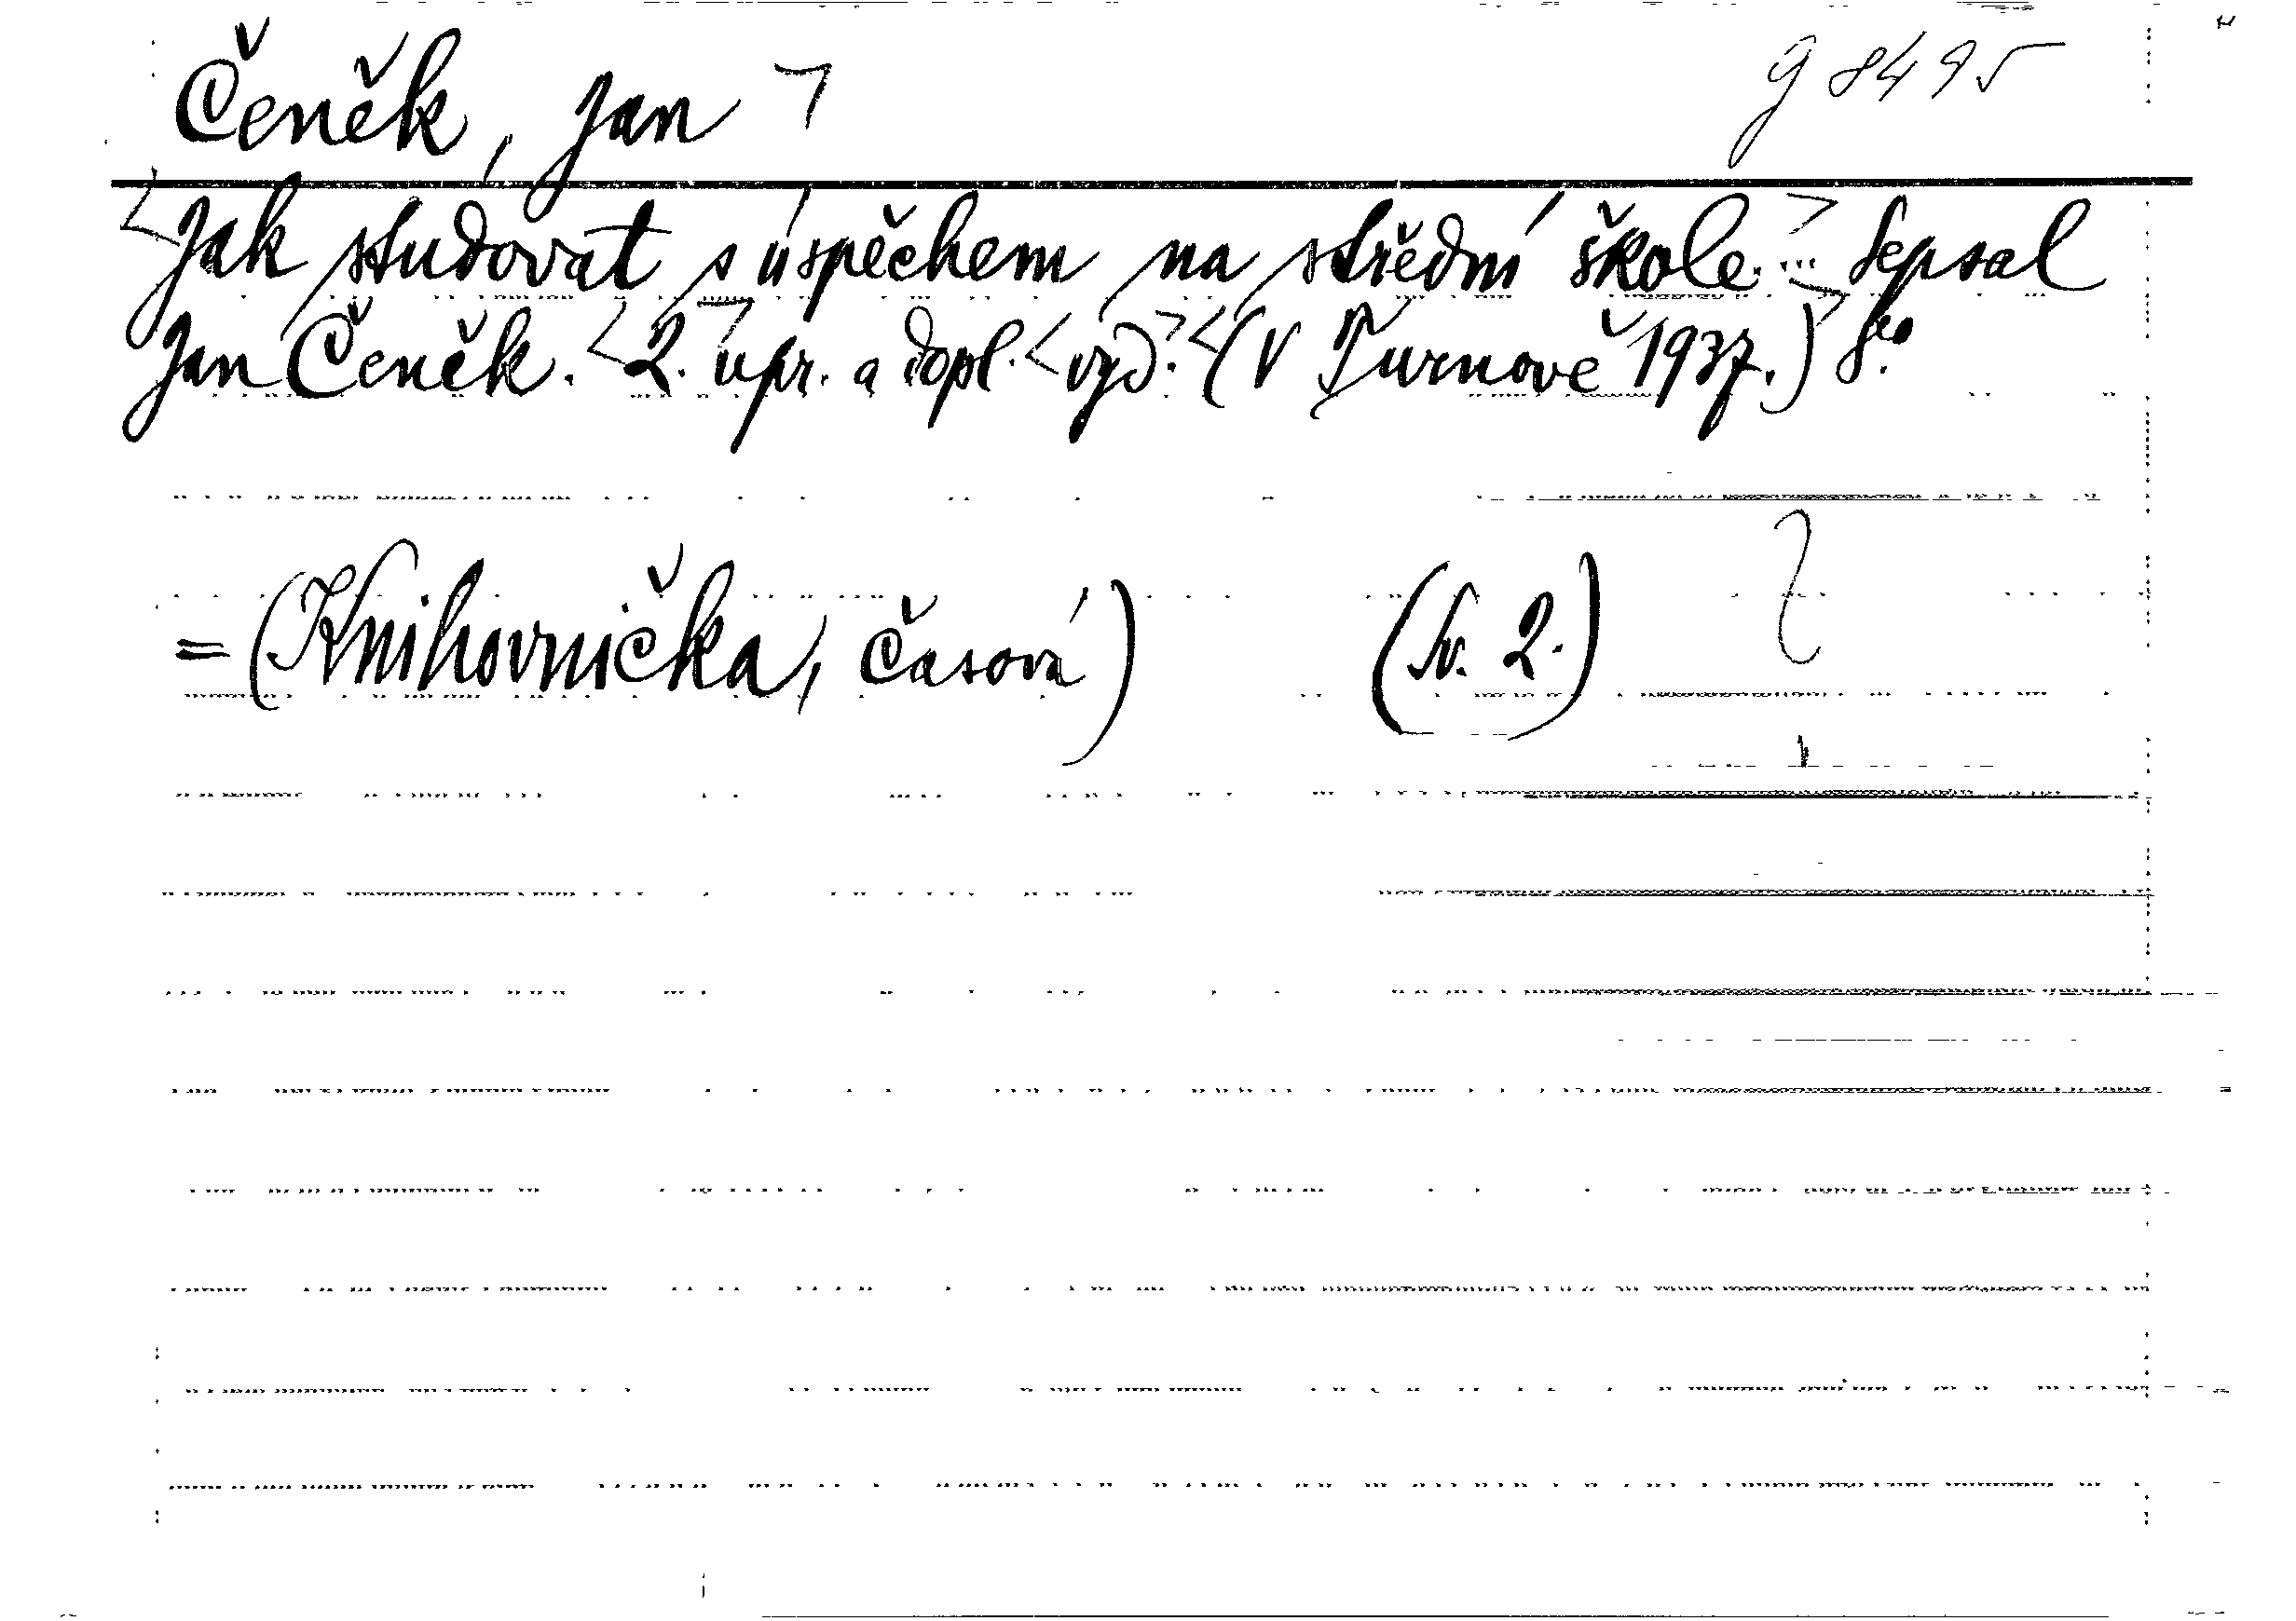 Čeněk, Jan g 8495
Jak studovat s úspěchem na střední škole. ... Sepsal
Jan Čeněk. 2. upr. a dopl. vyd. (V Turnově 1937.) 8°.
= (Knihovnička, Časová) (Sv. 2.)